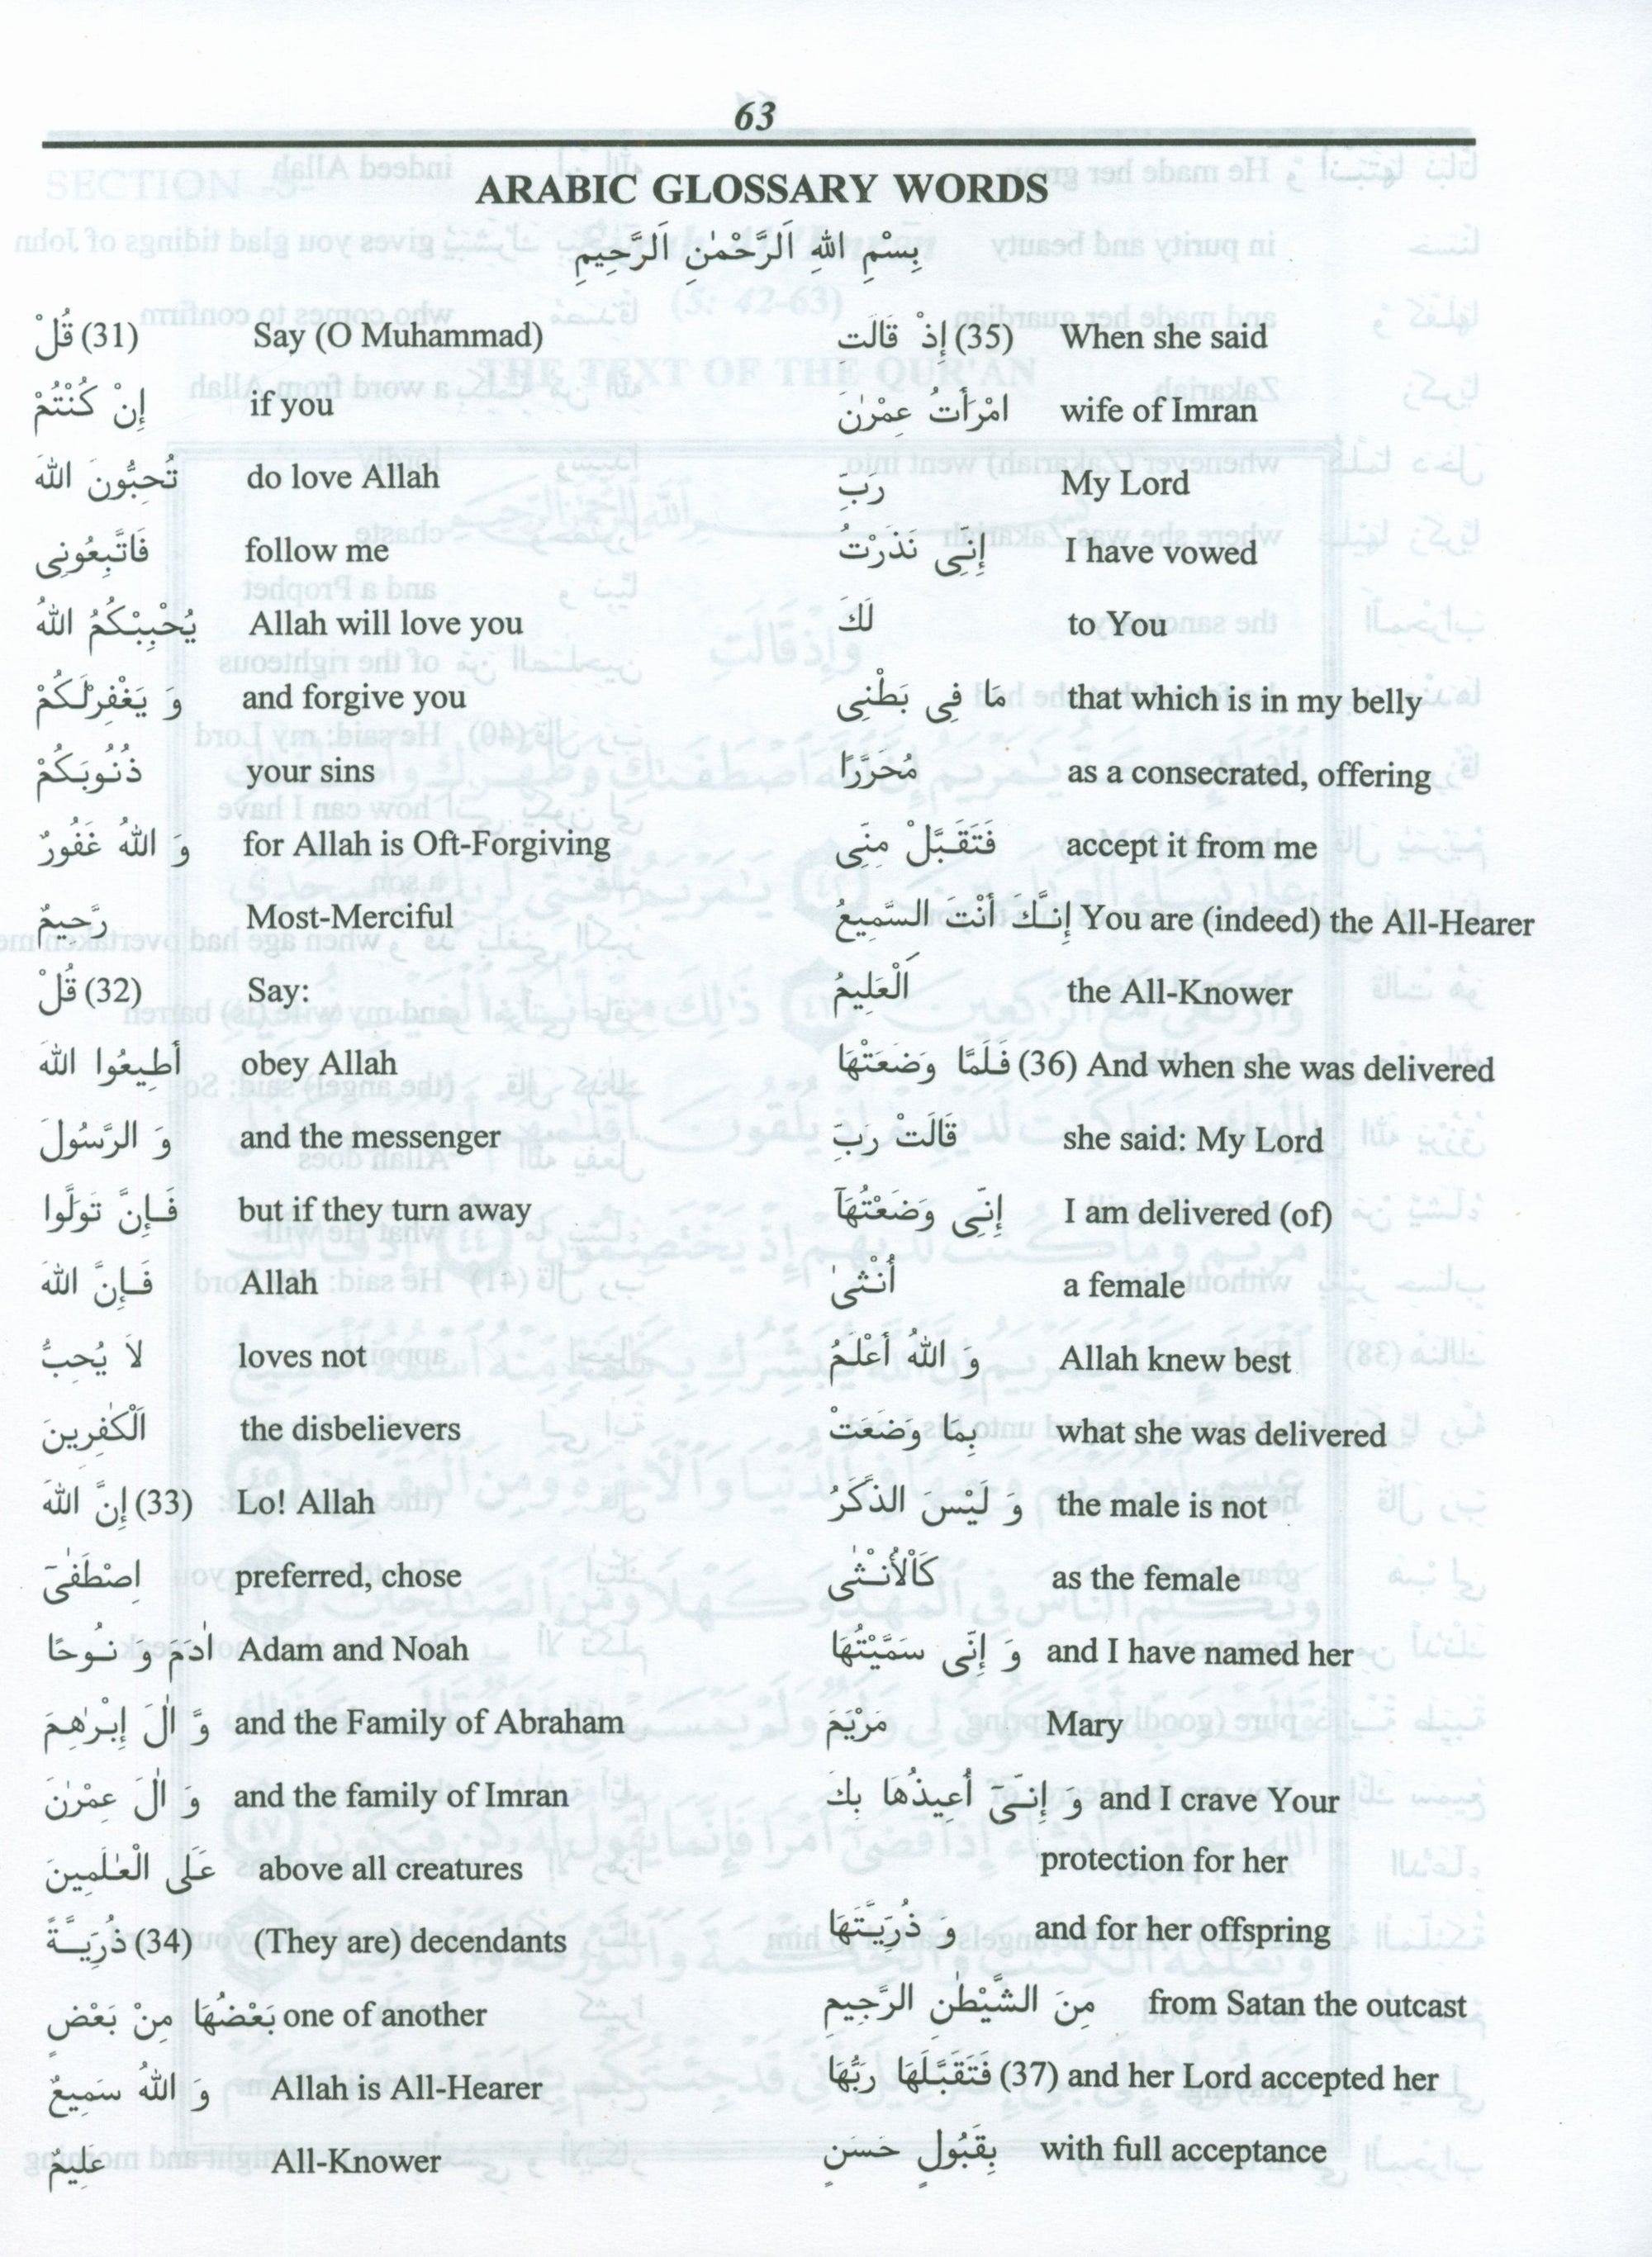 63
ARABIC GLOSSARY WORDS
بِسْمِ اللهِ اَلرَّحْمٰنِ اَلرَّحِيمِ
قُلْ (31) Say (O Muhammad)
إِنْ كُنْتُمْ if you
تُحِبُّونَ اللهَ do love Allah
فَاتَّبِعُونِى follow me
يُحْبِبْكُمُ اللهُ Allah will love you
وَ يَغْفِرْلَكُمْ and forgive you
ذُنُوبَكُمْ your sins
وَ اللهُ غَفُورٌ for Allah is Oft-Forgiving
رَّحِيمٌ Most-Merciful
قُلْ (32) Say:
أَطِيعُوا اللهَ obey Allah
وَ الرَّسُولَ and the messenger
فَإِنَّ تَوَلَّوا but if they turn away
فَإِنَّ اللهَ Allah
لاَ يُحِبُّ loves not
اَلْكٰفِرِينَ the disbelievers
إِنَّ اللهَ (33) Lo! Allah
اِصْطَفٰىٓ preferred, chose
اٰدَمَ وَ نُوحًا Adam and Noah
وَّ اٰلَ إِبْرٰهِمَ and the Family of Abraham
وَ اٰلَ عِمْرٰنَ and the family of Imran
عَلَى الْعٰلَمِينَ above all creatures
ذُرِّيَّةً (34) (They are) decendants
بَعْضُهَا مِنْ بَعْضٍ one of another
وَ اللهُ سَمِيعٌ Allah is All-Hearer
عَلِيمٌ All-Knower
إِذْ قَالَتِ (35) When she said
امْرَأَتُ عِمْرٰنَ wife of Imran
رَبِّ My Lord
إِنِّى نَذَرْتُ I have vowed
لَكَ to You
مَا فِى بَطْنِى that which is in my belly
مُحَرَّرًا as a consecrated, offering
فَتَقَبَّلْ مِنِّى accept it from me
إِنَّكَ أَنْتَ السَّمِيعُ You are (indeed) the All-Hearer
اَلْعَلِيمُ the All-Knower
فَلَمَّا وَضَعَتْهَا (36) And when she was delivered
قَالَتْ رَبِّ she said: My Lord
إِنِّى وَضَعْتُهَآ I am delivered (of)
أُنْثىٰ a female
وَ اللهُ أَعْلَمُ Allah knew best
بِمَا وَضَعَتْ what she was delivered
وَ لَيْسَ الذَّكَرُ the male is not
كَاَلْأُنْثٰى as the female
وَ إِنِّى سَمَّيْتُهَا and I have named her
مَرْيَمَ Mary
وَ إِنِّىٓ أُعِيذُهَا بِكَ and I crave Your
protection for her
وَ ذُرِّيَّتَهَا and for her offspring
مِنَ الشَّيْطٰنِ الرَّجِيمِ from Satan the outcast
فَتَقَبَّلَهَا رَبُّهَا (37) and her Lord accepted her
بِقَبُولٍ حَسَنٍ with full acceptance